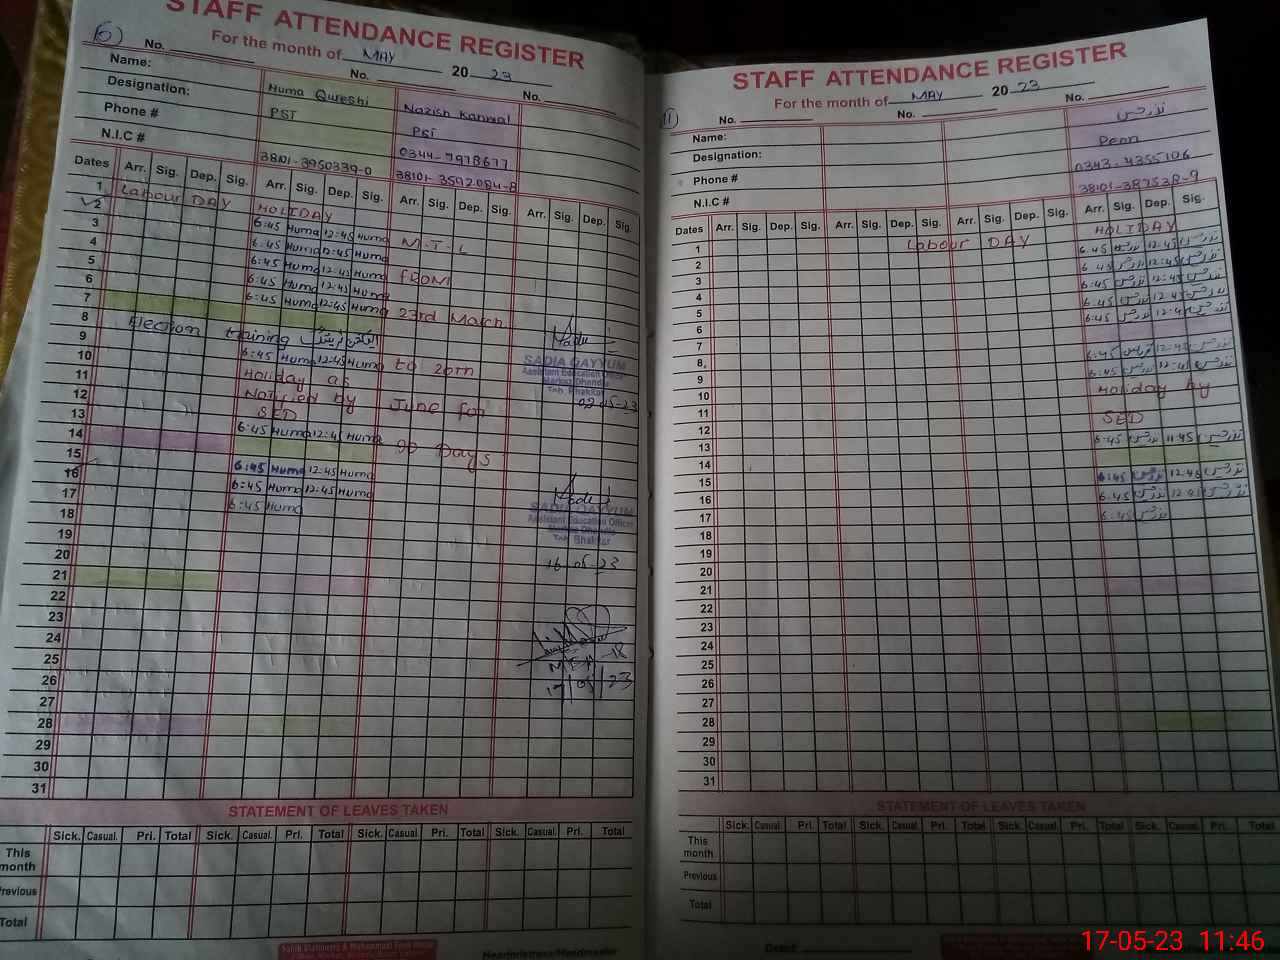 STAFF ATTENDANCE REGISTER
6
For the month of MAY 2023
No. No. No.
Name: Huma Qureshi Nazish Kanwal
Designation: PST PST
Phone # 0344-7978677
N.I.C # 38101-3950339-0 38101-3592084-8
Dates Arr. Sig. Dep. Sig. Arr. Sig. Dep. Sig. Arr. Sig. Dep. Sig. Arr. Sig. Dep. Sig.
1 Labour DAY HOLIDAY
2 6:45 Huma 12:45 Huma M.T.L
3 6:45 Huma 12:45 Huma
4 6:45 Huma 12:45 Huma FROM
5 6:45 Huma 12:45 Huma
6 6:45 Huma 12:45 Huma 23rd March
7
8 Election training
9 6:45 Huma 12:45 Huma to 20th
10 Holiday as
11 Notified by June for
12 SED
13 6:45 Huma 12:45 Huma 90 Days
14
15 6:45 Huma 12:45 Huma
16 6:45 Huma 12:45 Huma
17 6:45 Huma
18
19
20
21
22
23
24
25
26
27
28
29
30
31
SADIA QAYYUM
Assistant Education Officer
Markaz Dhandla
Teh. Bhakkar
02-05-23
SADIA QAYYUM
Assistant Education Officer
Markaz Dhandla
Teh. Bhakkar
16-05-23
17/05/23
STATEMENT OF LEAVES TAKEN
Sick. Casual. Pri. Total Sick. Casual. Pri. Total Sick. Casual. Pri. Total Sick. Casual. Pri. Total
This month
Previous
Total
Headmistress/Headmaster
STAFF ATTENDANCE REGISTER
11
For the month of MAY 2023
No. No. No.
Name: نرجس
Designation: Peon
Phone # 0343-4355106
N.I.C #
Dates Arr. Sig. Dep. Sig. Arr. Sig. Dep. Sig. Arr. Sig. Dep. Sig. Arr. Sig. Dep. Sig.
1 Labour DAY HOLIDAY
2 6:45 نرجس 12:45 نرجس
3 6:45 نرجس 12:45 نرجس
4 6:45 نرجس 12:45 نرجس
5 6:45 نرجس 12:45 نرجس
6 6:45 نرجس 12:45 نرجس
7
8 6:45 نرجس 12:45 نرجس
9 6:45 نرجس 12:45 نرجس
10 Holiday by
11
12 SED
13 6:45 نرجس 11:45 نرجس
14
15 6:45 نرجس 12:45 نرجس
16 6:45 نرجس 12:45 نرجس
17 6:45 نرجس
18
19
20
21
22
23
24
25
26
27
28
29
30
31
STATEMENT OF LEAVES TAKEN
Sick. Casual. Pri. Total Sick. Casual. Pri. Total Sick. Casual. Pri. Total Sick. Casual. Pri. Total
This month
Previous
Total
17-05-23 11:46